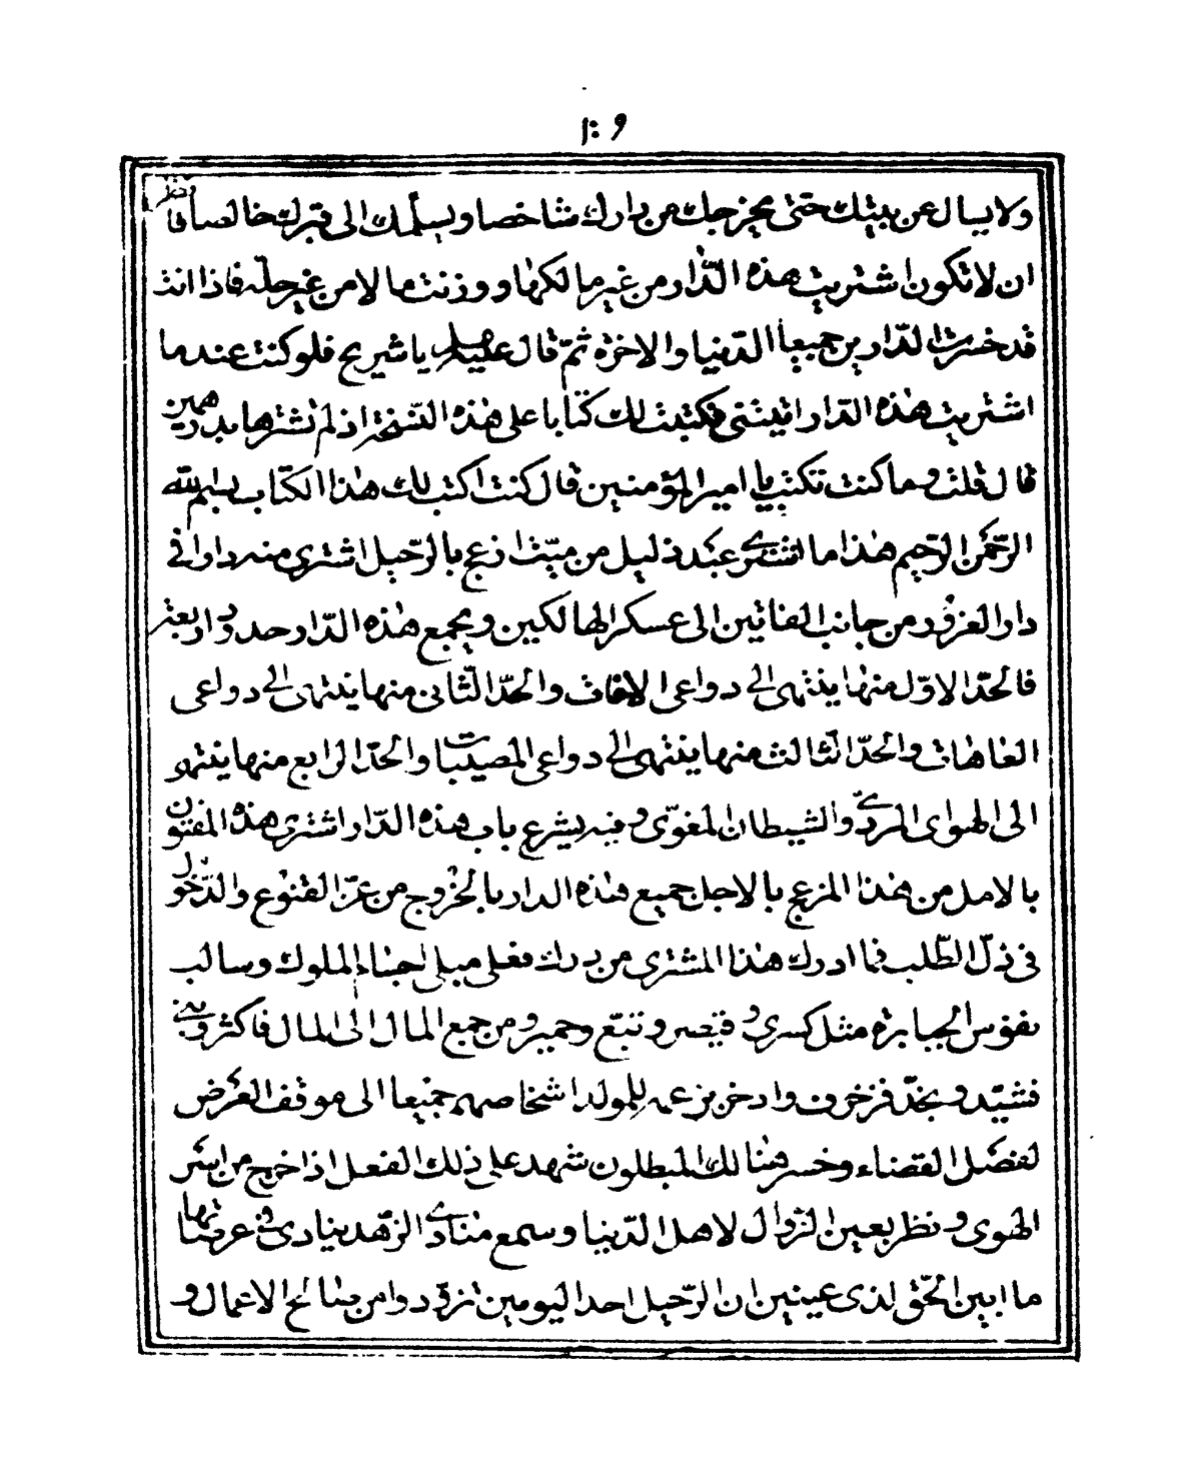 ١٠٩
ولا يسال عن بيتك حتى يخرجك من دارك شاخصا ويسلمك الى قبرك خالصا فانظر
ان لا تكون اشتريت هذه الدّار من غير مالكها ووزنت مالا من غير حلّه فاذا انت
قد خسرت الدّارين جميعا الدّنيا والاخرة ثمّ قال عليه السلم يا شريح فلو كنت عند ما
اشتريت هذه الدّار اتيتنى فكتبت لك كتابا على هذه النّسخة اذ لم تشترها بدرهمين
قال قلت وما كنت تكتب يا امير المؤمنين قال كنت اكتب لك هذا الكتاب بسم الله
الرّحمن الرّحيم هذا ما اشترى عبد ذليل من ميّت ازعج بالرّحيل اشترى منه دارا فى
دار الغرور من جانب الفانين الى عسكر الهالكين ويجمع هذه الدّار حدود اربعة
فالحدّ الاوّل منها ينتهى الى دواعى الافات والحدّ الثّانى منها ينتهى الى دواعى
العاهات والحدّ الثالث منها ينتهى الى دواعى المصيبات والحدّ الرابع منها ينتهى
الى الهوى المردى والشيطان المغوى وفيه يشرع باب هذه الدّار اشترى هذه المفتون
بالامل من هذا المزعج بالاجل جميع هذه الدار بالخروج من عزّ القنوع والدّخول
فى ذلّ الطّلب فما ادرك هذا المشترى من درك فعلى مبلى اجساد الملوك وسالب
نفوس الجبابرة مثل كسرى وقيصر وتبّع وحمير ومن جمع المال الى المال فاكثر وبنى
فشيّد ونجّد فزخرف وادخر بزعمه للولد اشخاصهم جميعا الى موقف العرض
لفصل القضاء وخسر هنالك المبطلون شهد على ذلك الفعل اذا خرج من اسر
الهوى ونظر بعين الزوال لاهل الدّنيا وسمع منادى الزّهد ينادى فى عرصاتها
ما ابين الحقّ لذى عينين ان الرّحيل احد اليومين تزوّدوا من صالح الاعمال و